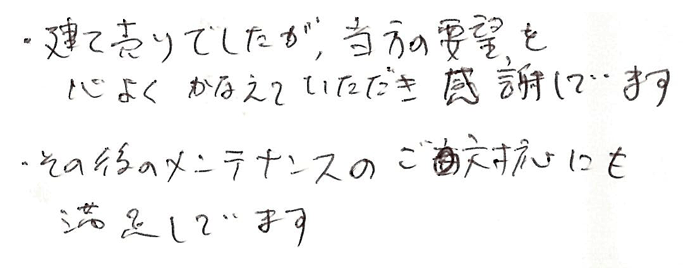 ・建て売りでしたが、当方の要望を
心よくかなえていただき感謝しています
・その後のメンテナンスのご対応にも
満足しています